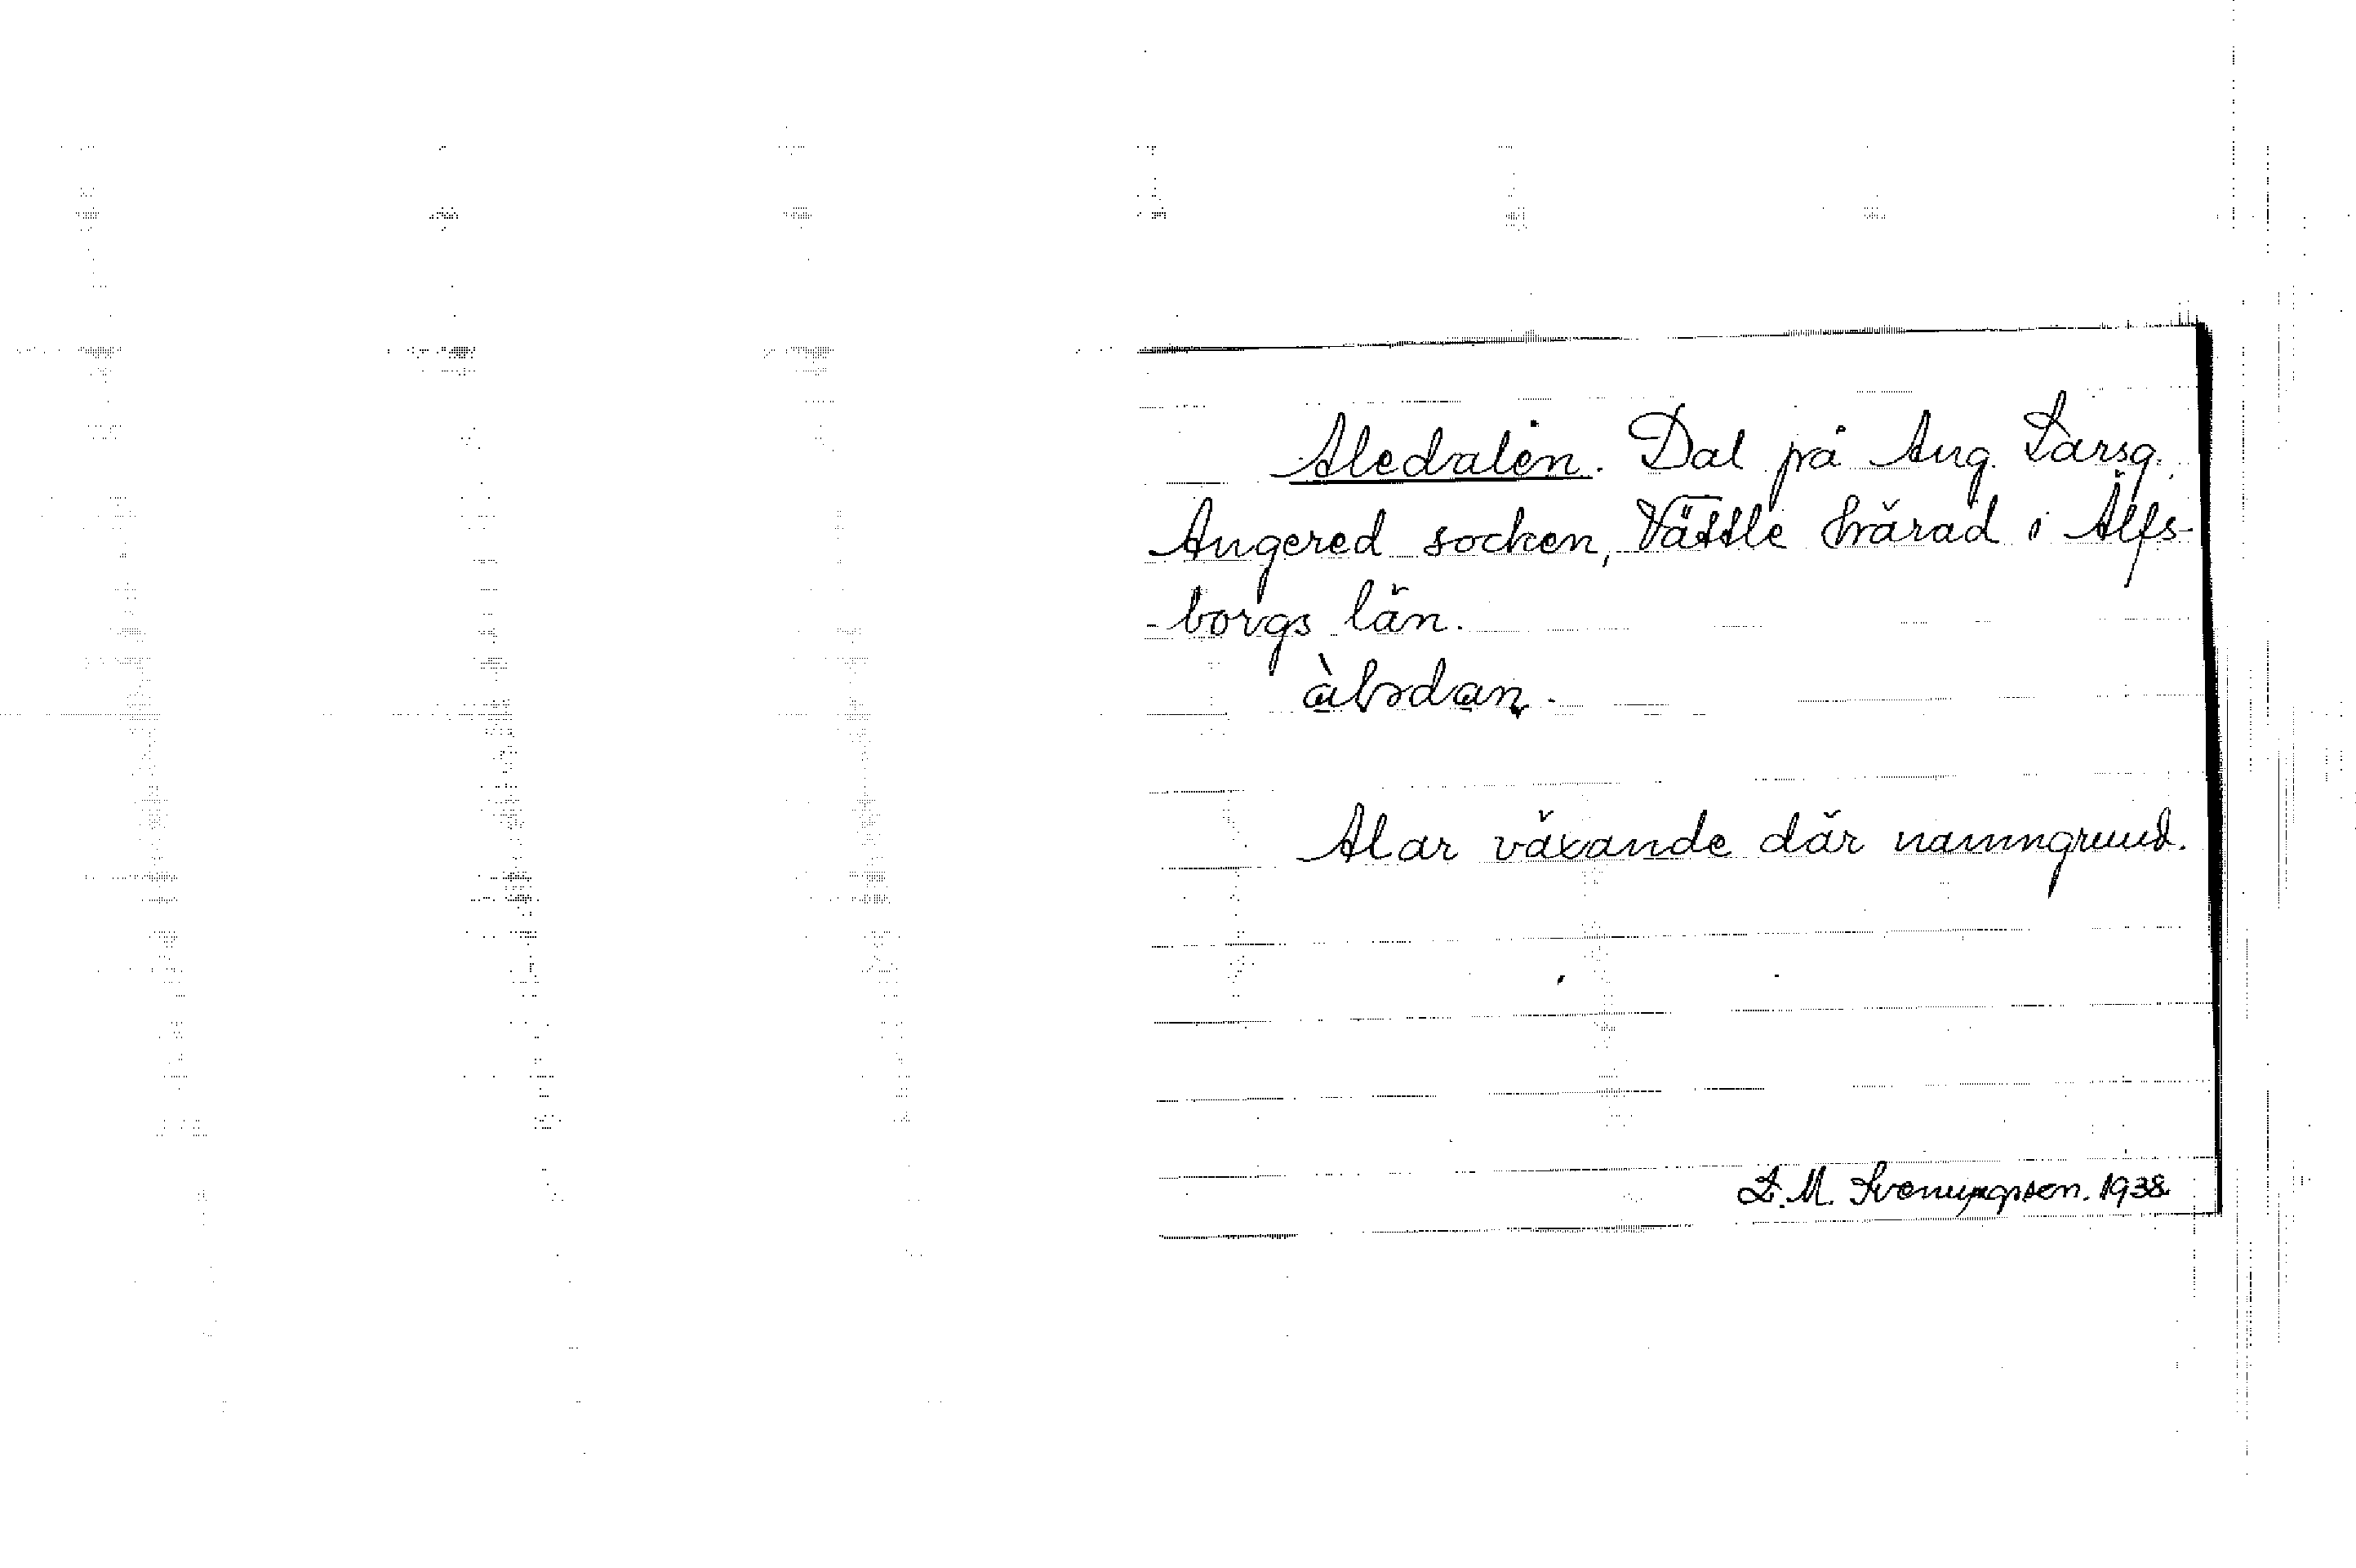 Aledalen. Dal på Aug. Larsg.
Angered socken, Vättle härad i Älfs-
-borgs län.
àlədan.
Alar växande där namngrund.
D.M. Svenungsson. 1938